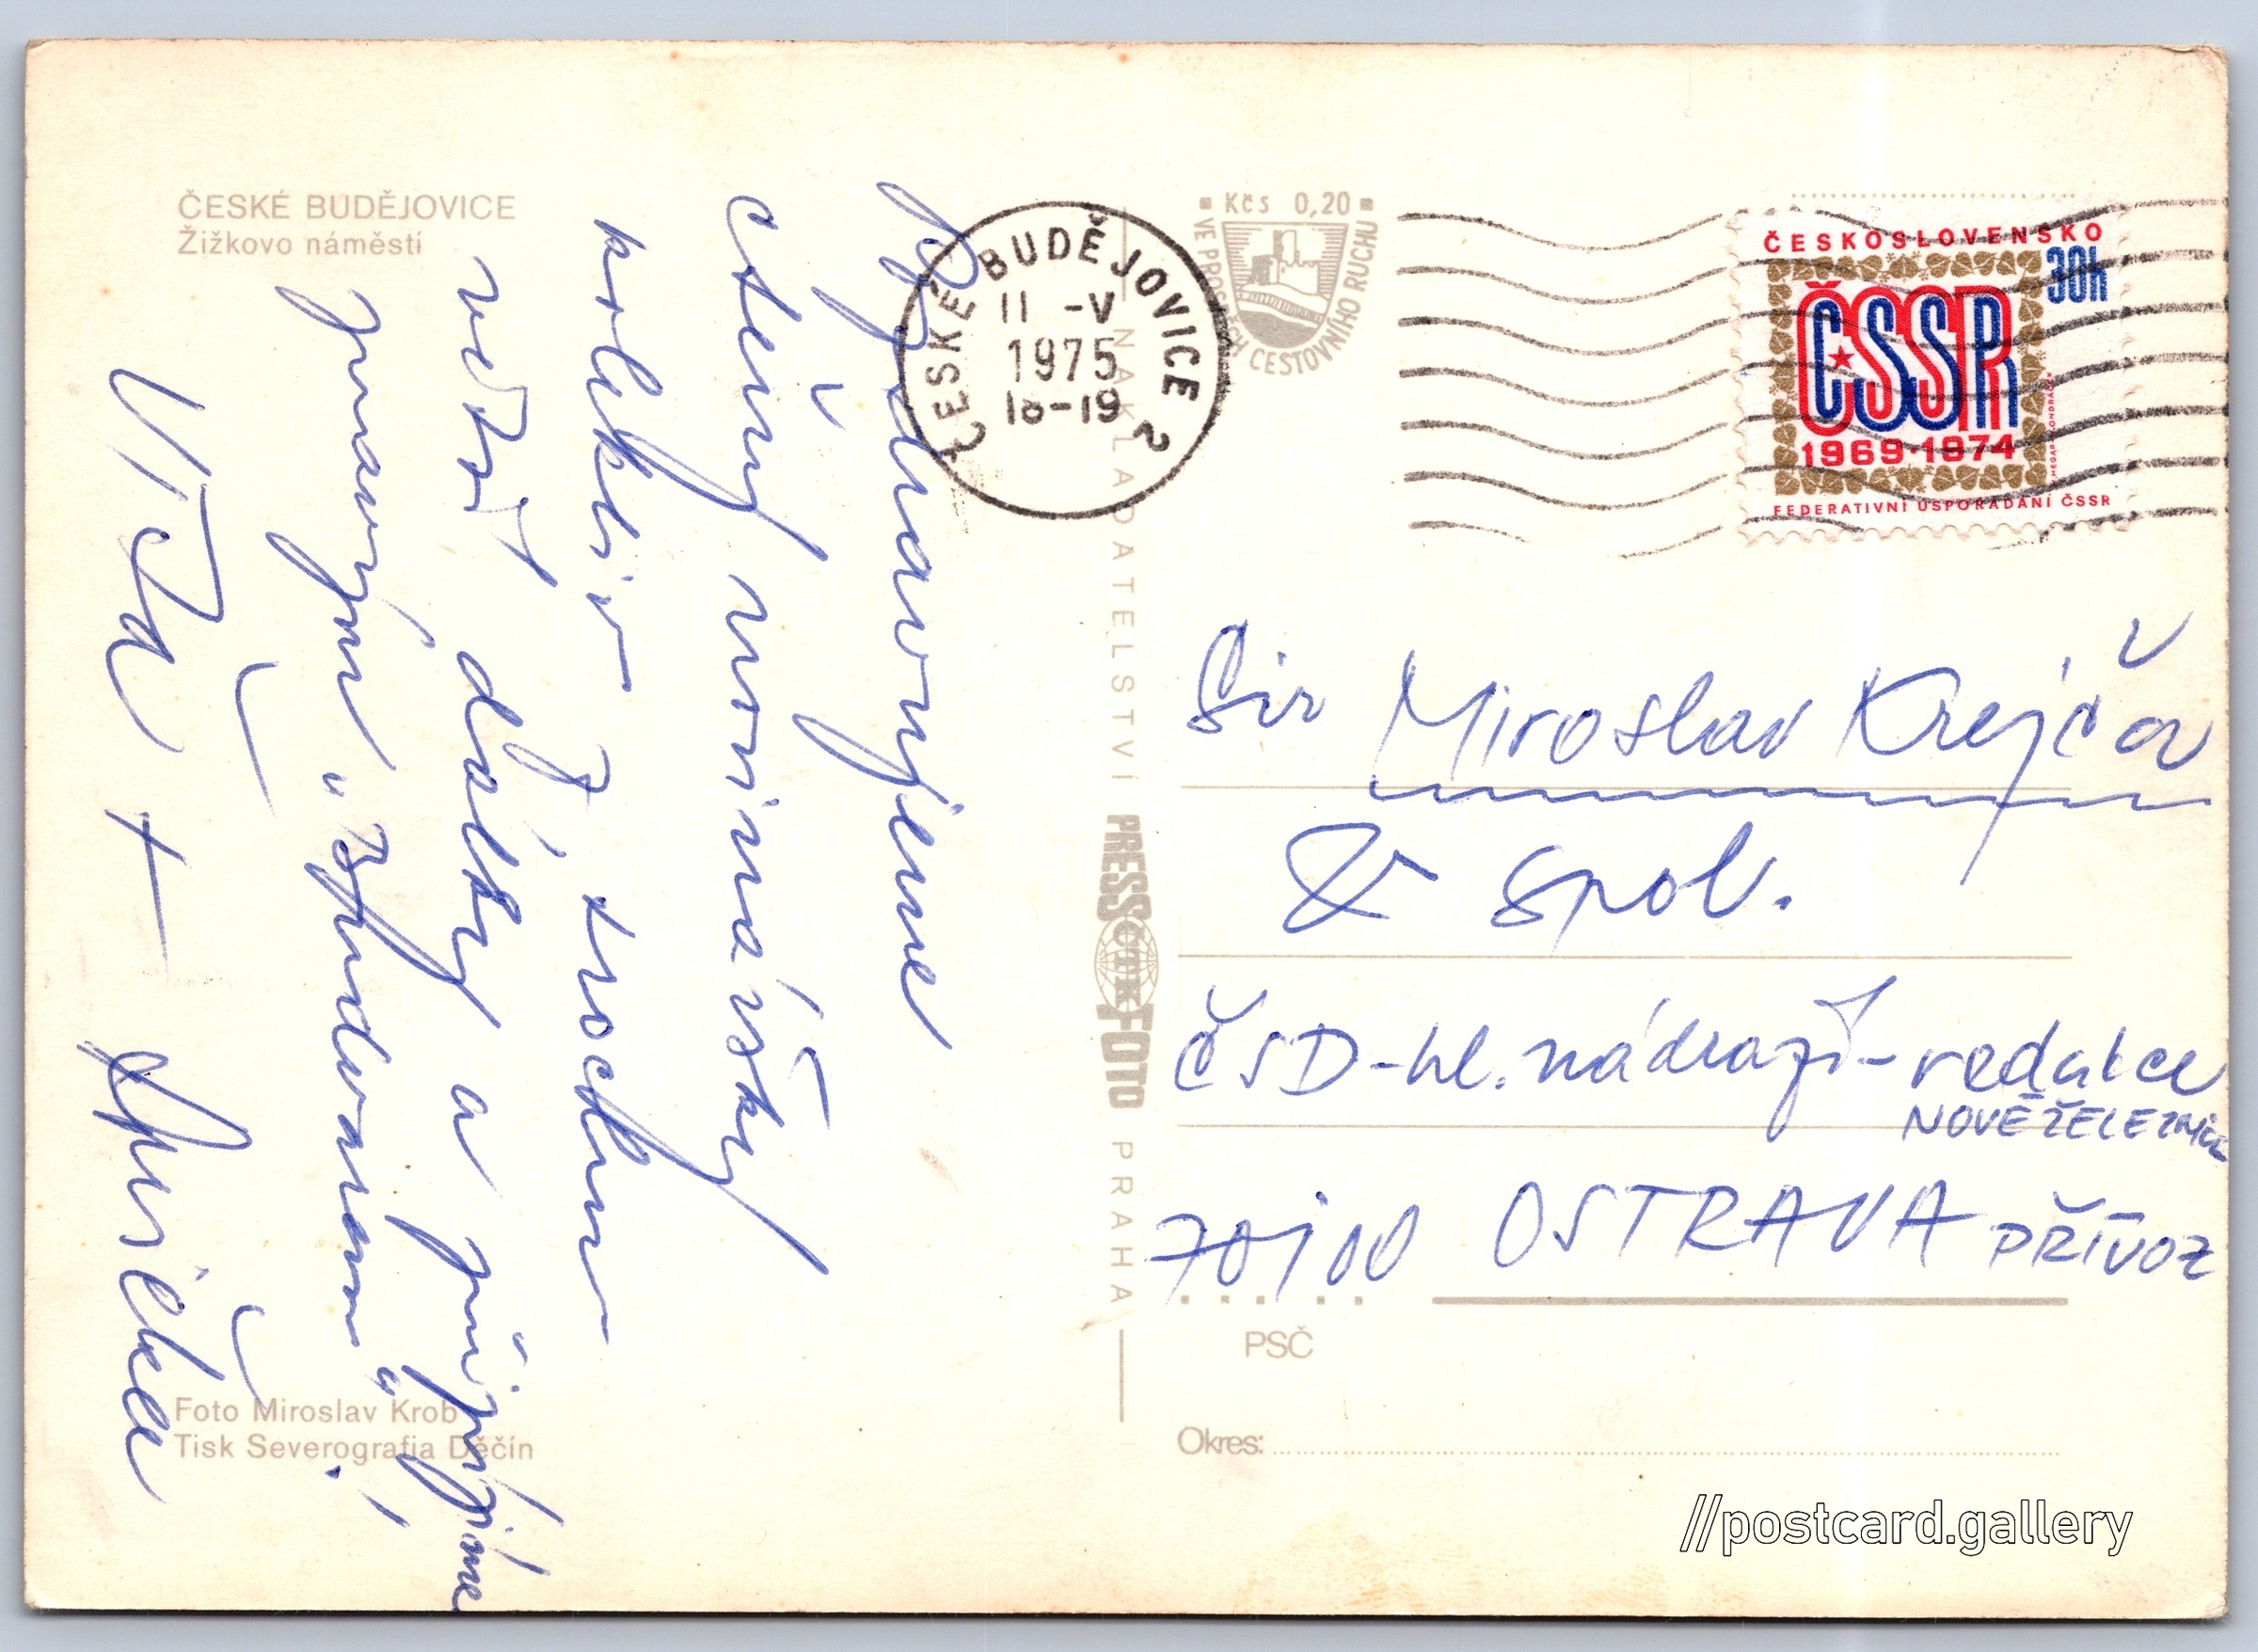 ČESKÉ BUDĚJOVICE
Žižkovo náměstí
Pozdravujeme
ctěný novinářský
kolektiv z trochu
větší dálky a připojujeme
Víťa +
Foto Miroslav Krob
Tisk Severografia Děčín
ČESKÉ BUDĚJOVICE 2
11 -V
1975
18-19
NAKLADATELSTVÍ PRESSFOTO PRAHA
ČTK
Kčs 0,20
VE PROSPĚCH CESTOVNÍHO RUCHU
ČESKOSLOVENSKO
30h
ČSSR
1969·1974
FEDERATIVNÍ USPOŘÁDÁNÍ ČSSR
Sir Miroslav Krejča
& spol.
ČSD-hl. nádraží-redakce
NOVÉ ŽELEZNICE
70100 OSTRAVA PŘÍVOZ
PSČ
Okres:
//postcard.gallery